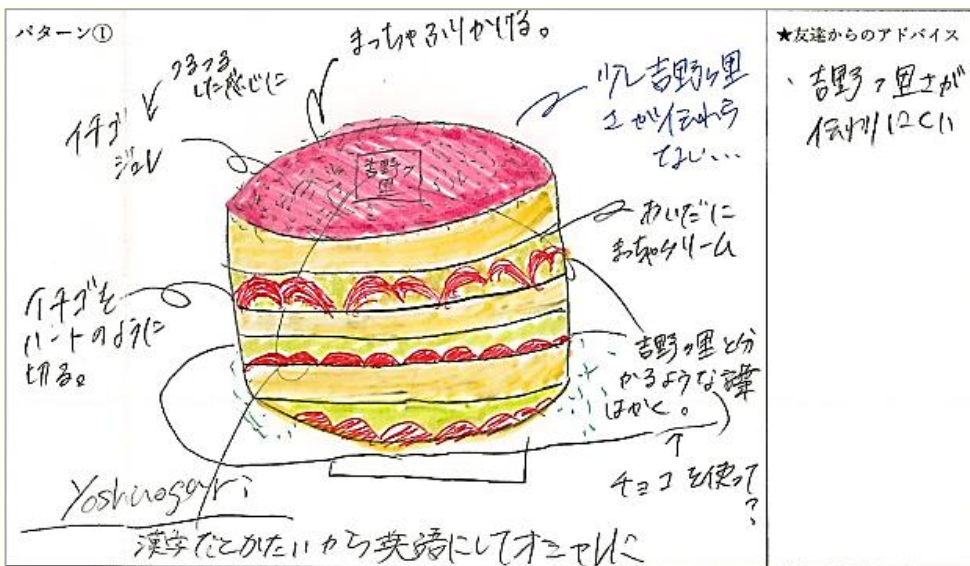 パターン①
まっちゃふりかける。
つるつる
した感じに
イチゴ
ジュレ
少し吉野ヶ里
さが伝わら
ない…
吉野ヶ
里
あいだに
まっちゃクリーム
イチゴを
ハートのように
切る。
吉野ヶ里と分
かるような言葉
はかく。
チョコを使って
?
Yoshinogari
漢字だとかたいから英語にしてオシャレに
★友達からのアドバイス
・吉野ヶ里さが
伝わりにくい